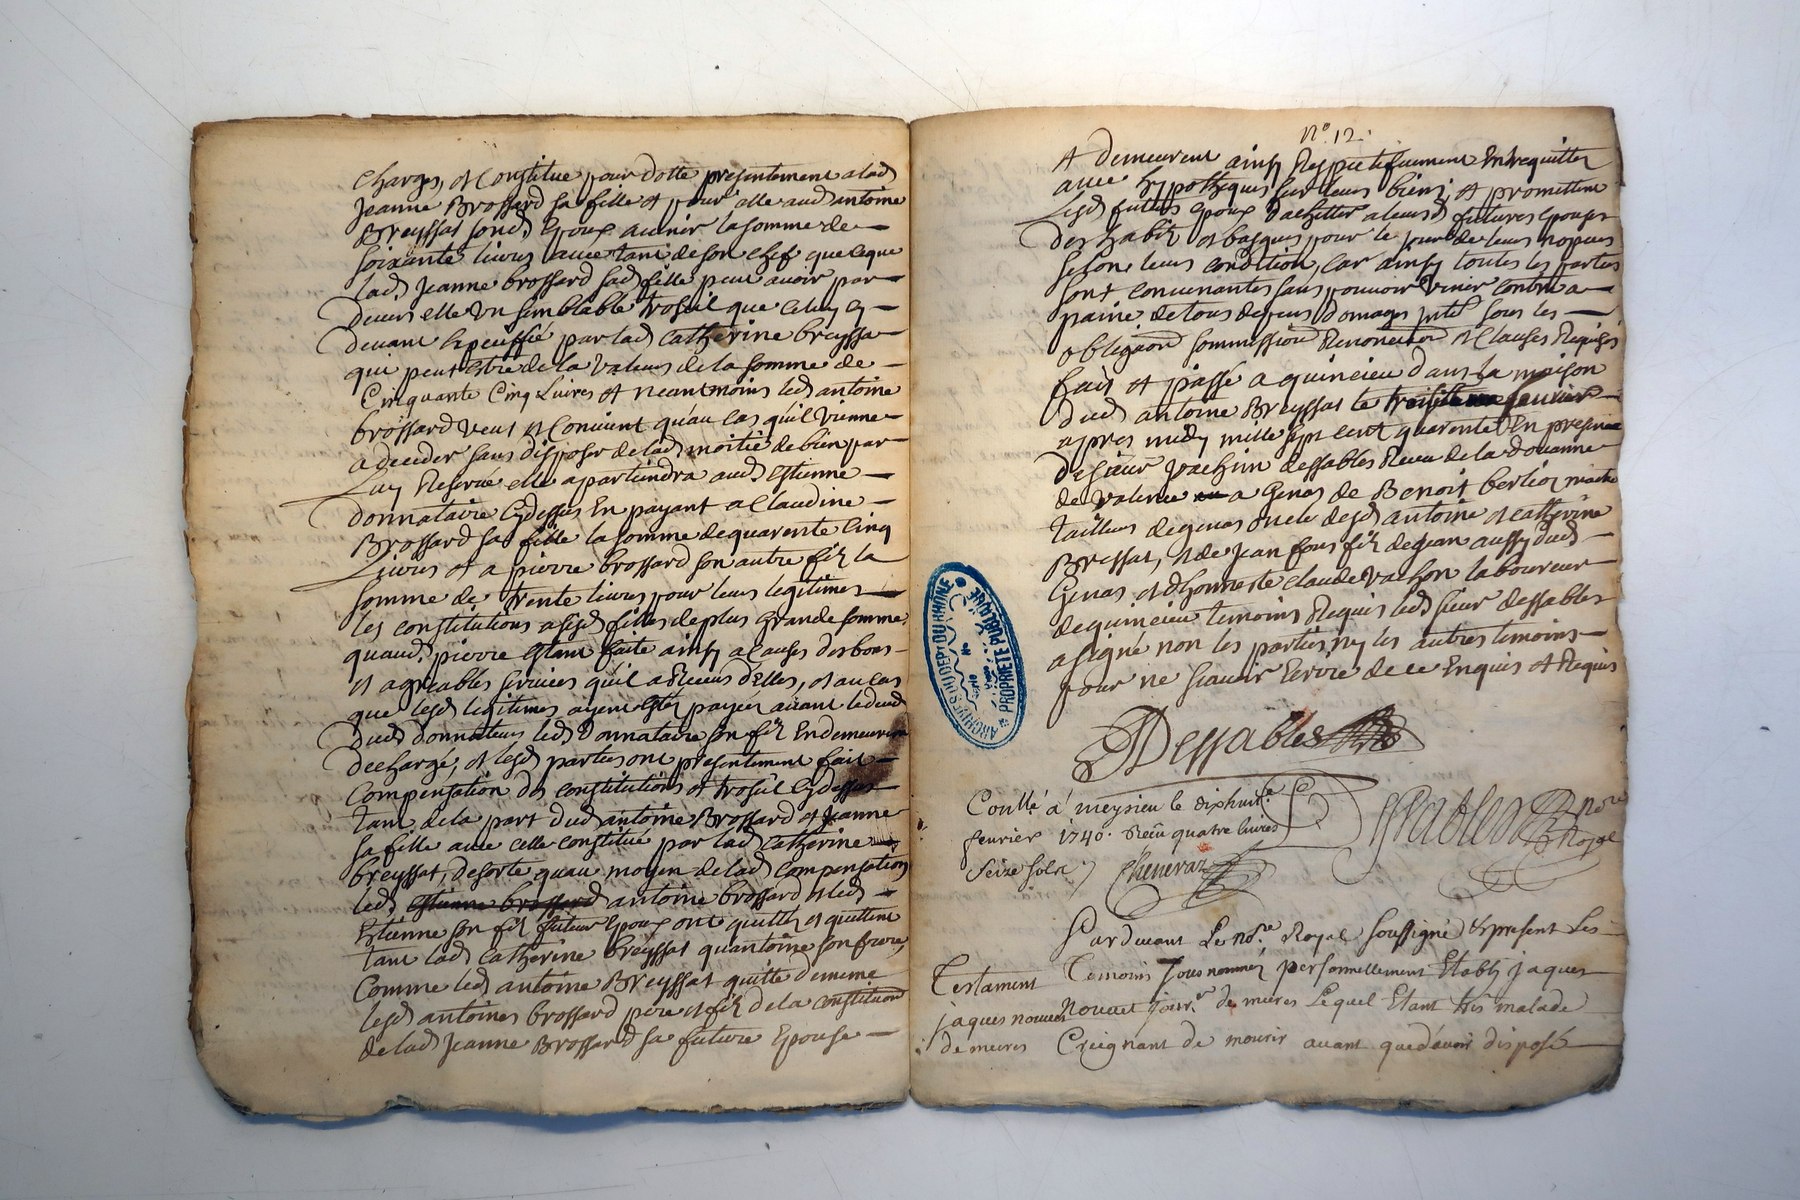 charges, et Constitue pour dotte presentement a lad
Jeanne Brossard sa fille et pour elle aud antoine
Breyssat sond. Epoux auenir la somme de
soixante liures auec tant de son chef que ce que
lad. Jeanne brossard sad fille peut auoir par
deuers elle vn semblable trosseil que celuy cy
deuant speciffié par lad Catherine breyssa
qui peut estre de la valeur de la somme de
Cinquante Cinq Liures et neantmoins led antoine
brossard veut et Conuient qu'au cas qu'il vienne
a deceder sans disposer de lad moitié de bien par
Luy Reservée elle apartiendra aud. Estienne
donnataire Cydessus En payant a Claudine
Brossard sa fille la somme de quarente Cinq
Liures et a pierre brossard son autre filz la
somme de trente liures pour leurs legitimes
les constitutions a sesd filles de plus grande somme
quaud. pierre Estant faite ainsy a Causes des bons
et agreables seruices qu'il a Receus d'Elles, et au cas
que lesd legitimes ayent Estez payez auant le deced
dud donnateur led donnataire son filz En demeurera
dechargé, et lesd parties ont presentement fait
Compensation des constitutions et trosseil Cydessus
tant de la part dud antoine Brossard et Jeanne
sa fille auec celle constituée par lad Catherine
breyssat, desorte quau moyen de lad compensation
led. estienne brossard antoine brossard et led
Etienne son filz futeur Epoux ont quitté et quittent
tant lad Catherine breyssat quantoine son frere,
Comme led antoine Breyssat quitte de meme
lesd antoines brossard pere et filz de la constituon
de lad Jeanne Brossard sa future Epouse
N° 12.
et demeurent ainsy Respectifuement Entrequittez
auec hypotheques sur leurs biens; et promettent
Lesd futurs Epoux d'achetter a leursd futures Epouses
des habitz et bagues pour le jour de leurs nopces
selon leurs condition, Car ainsy toutes les parties
sont conuenantes sans pouuoir venir contre a
paine de tous depens domages jnté sous les
obligaon sommission Renonciaon et Clauses Requises
fait et passé a quincieu dans la maison
dud antoine Breyssat le feurier
apres midy mille sept cent quarente En presence
de sieur Joachim dessables Receu de la douanne
de valence a Genas de Benoit berlioz maitre
tailleur de genas oncle desd antoine et catherine
Breyssat, et de jean fous filz de jean aussy dud
Genas et d'honneste claude vachon laboureur
de quincieu temoins Requis led sieur dessables
a signé non les parties ny les autres temoins
pour ne scauoir Ecrire de ce Enquis et Requis
Dessables
Conllé á meysieu le dixhuit.e
feurier 1740. Receu quatre liures
seize sols
Cheneraz
Dessables nore Royal
Pardeuant Le nore. Royal soussigné et present Les
Temoins sous nommez personnellement Etably jaques
nouuet jour.er de mieres Lequel Etant tres malade
Creignant de mourir auant que d'auoir disposé
Testament
jaques nouuet
de mieres
ARCHIVES DU DEPT DU RHONE
PROPRIETE PUBLIQUE